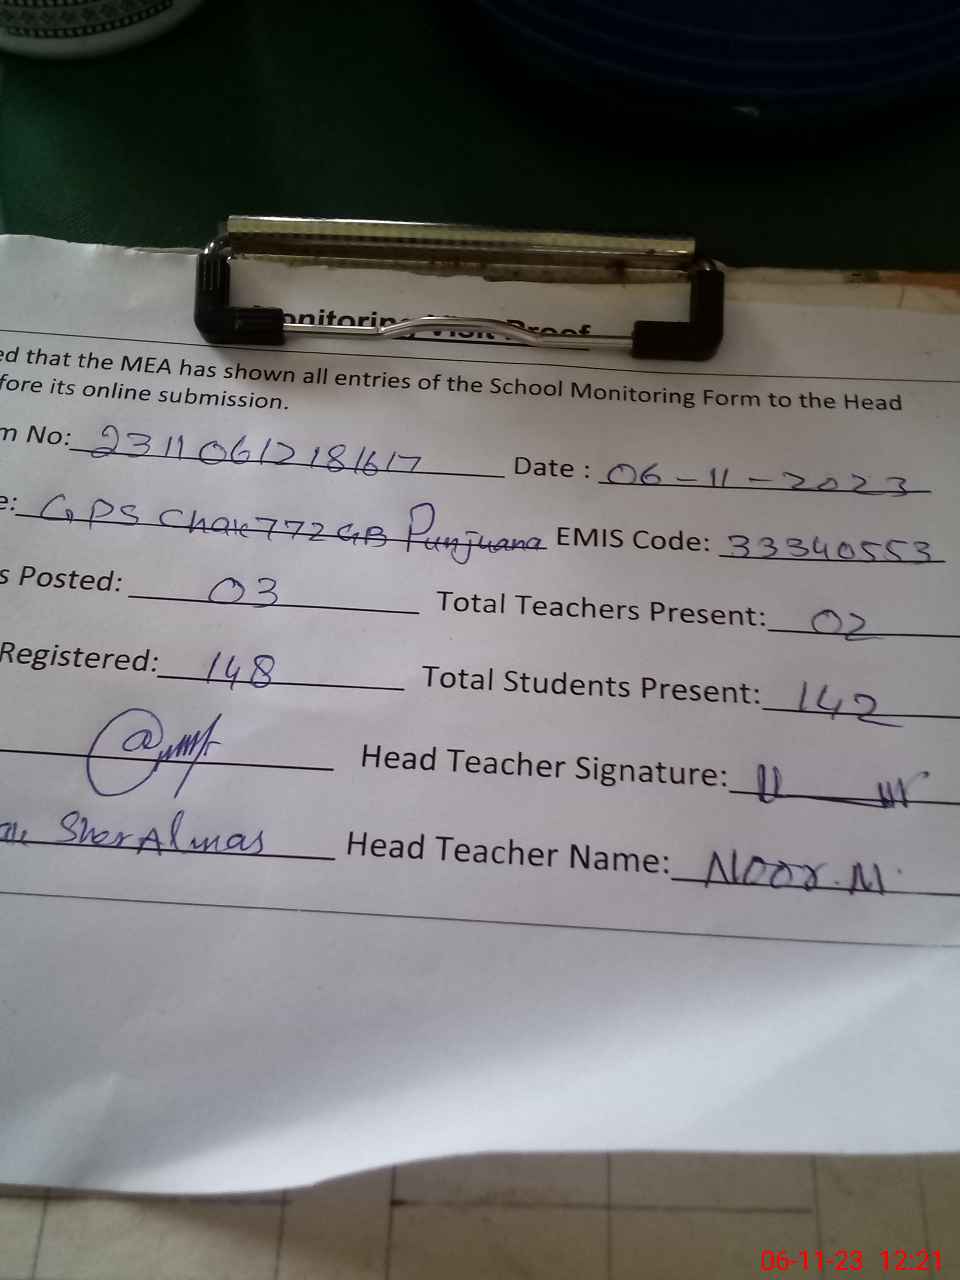 onitoring Visit Proof
ed that the MEA has shown all entries of the School Monitoring Form to the Head
fore its online submission.
m No: 23110612181617 Date : 06-11-2023
e: GPS Chak 772 GB Punjuana EMIS Code: 33340553
s Posted: 03 Total Teachers Present: 02
Registered: 148 Total Students Present: 142
Head Teacher Signature:
Sher Almas Head Teacher Name: Noor.M.
06-11-23 12:21